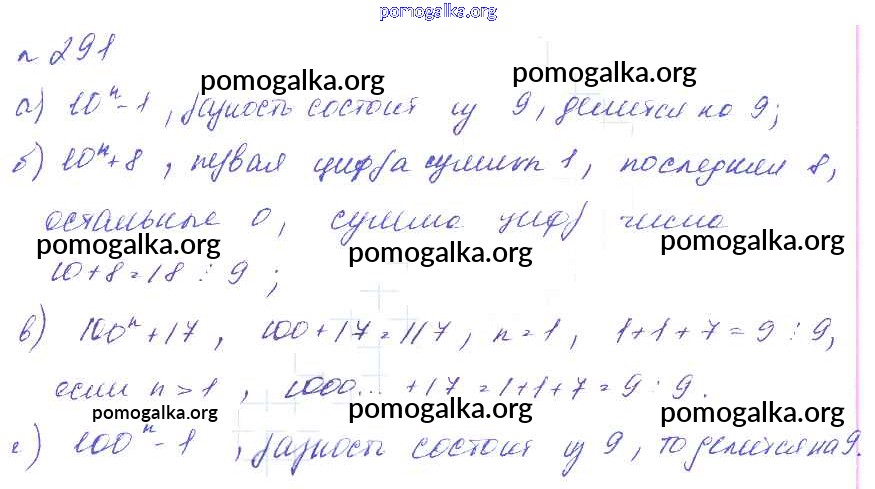 pomogalka.org
n 291
pomogalka.org pomogalka.org
а) 10ⁿ-1, разность состоит из 9, делится на 9;
б) 10ⁿ+8, первая цифра суммы 1, последняя 8,
остальные 0, сумма цифр числа
pomogalka.org pomogalka.org pomogalka.org
10+8=18 ⋮ 9 ;
в) 100ⁿ+17, 100+17=117, n=1, 1+1+7=9 ⋮ 9,
если n>1, 1000...+17=1+1+7=9 ⋮ 9.
pomogalka.org pomogalka.org pomogalka.org
г) 100ⁿ-1, разность состоит из 9, то делится на 9.